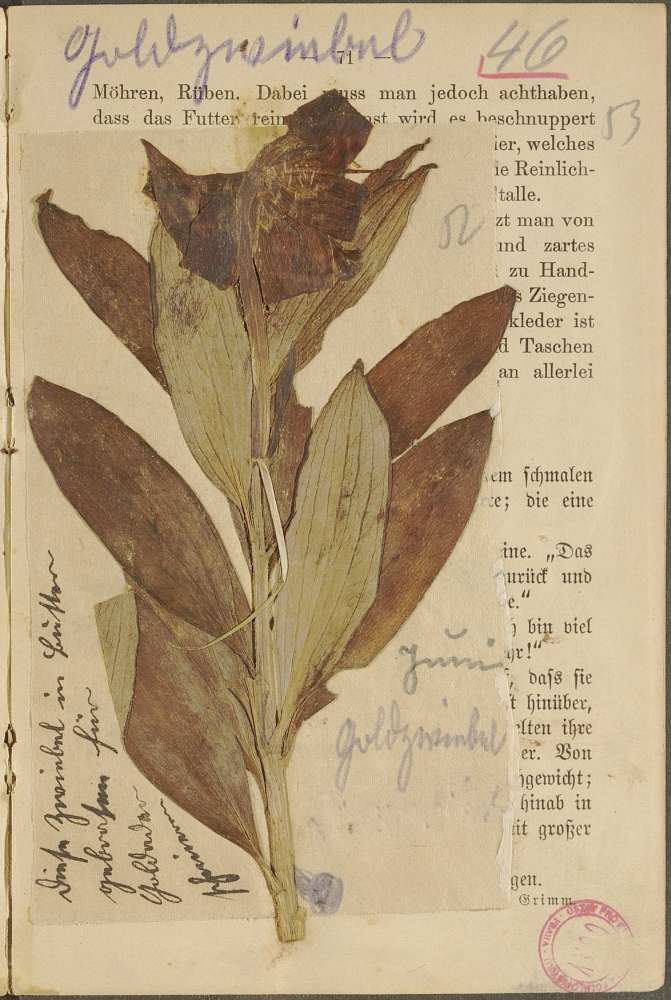 Goldzwiebel
— 71 —
46
Möhren, Rüben. Dabei muss man jedoch achthaben,
53
dass das Futter rein ist wird es beschnuppert
ier, welches
ie Reinlich-
talle.
52
zt man von
und zartes
zu Hand-
s Ziegen-
kleder ist
d Taschen
an allerlei
em ſchmalen
te; die eine
ine. „Das
urück und
e.“
bin viel
hr!“
Juni
, daſs ſie
t hinüber,
elten ihre
Goldzwiebel
er. Von
hgewicht;
hinab in
it großer
gen.
Grimm.
Diese Zwiebel in Butter
gebraten für
Goldader